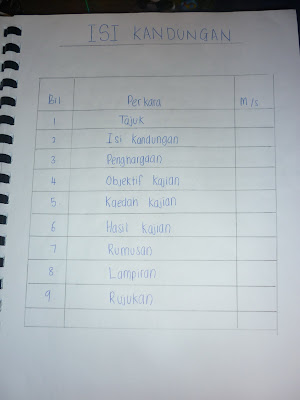 ISI KANDUNGAN
Bil Perkara M/s
1 Tajuk
2 Isi Kandungan
3 Penghargaan
4 Objektif Kajian
5 Kaedah Kajian
6 Hasil Kajian
7 Rumusan
8 Lampiran
9 Rujukan